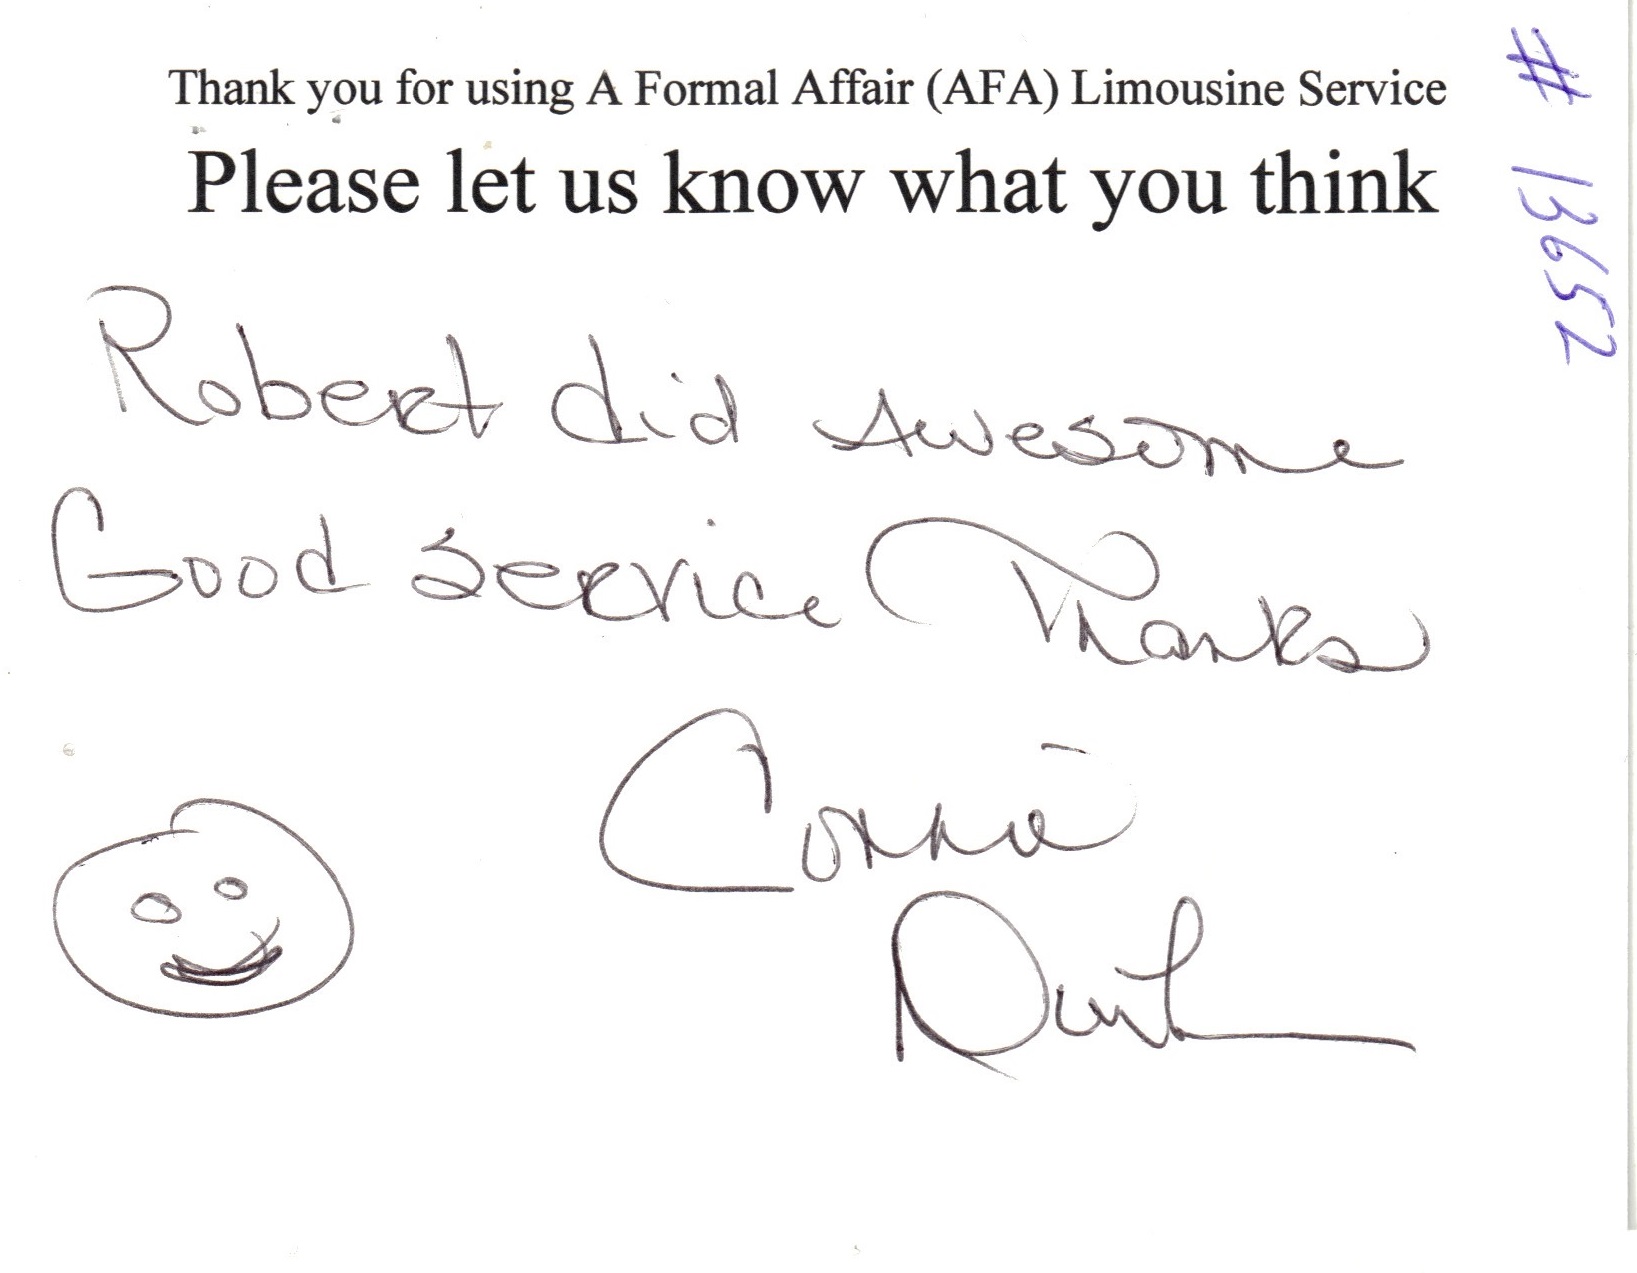 Thank you for using A Formal Affair (AFA) Limousine Service
Please let us know what you think
# 13652
Robert did Awesome
Good Service Thanks
Connie